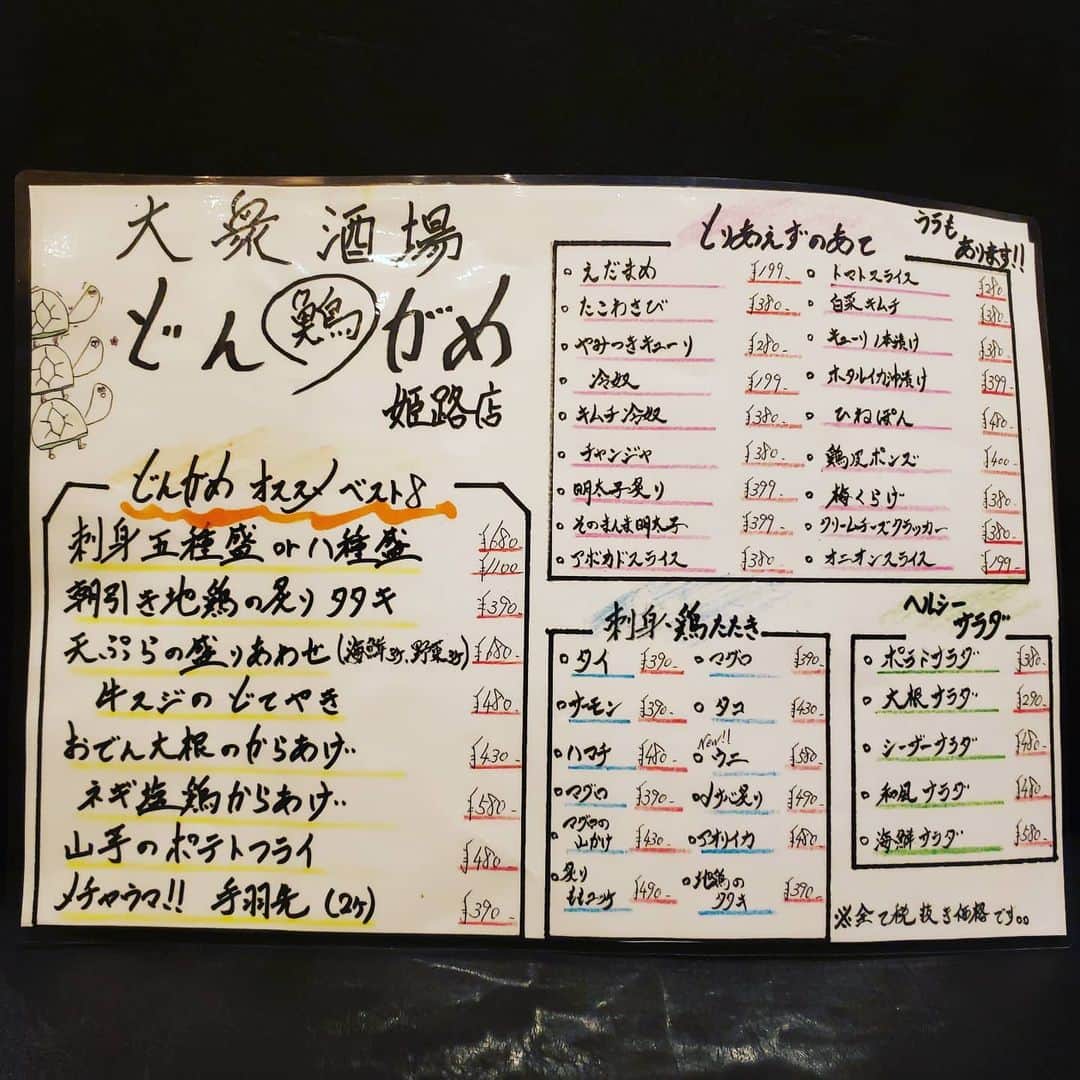 大衆酒場
どん
がめ
姫路店
どんがめ オススメ ベスト8
刺身五種盛 or 八種盛 ¥680-
¥1100
朝引き地鶏の炙りタタキ ¥390-
天ぷらの盛りあわせ(海鮮3ヶ、野菜3ヶ) ¥680-
牛スジのどてやき ¥480-
おでん大根のからあげ‥ ¥430-
ネギ塩鶏からあげ‥ ¥580-
山芋のポテトフライ ¥480-
メチャウマ!! 手羽先 (2ヶ) ¥390-
とりあえずのあて
うらも
あります!!
えだまめ ¥199-
たこわさび ¥380-
やみつきキューリ ¥280-
冷奴 ¥199-
キムチ冷奴 ¥380-
チャンジャ ¥380-
明太子炙り ¥399-
そのまんま明太子 ¥399-
アボカドスライス ¥380-
トマトスライス ¥280-
白菜キムチ ¥380-
キューリ1本漬け ¥380-
ホタルイカ沖漬け ¥399-
ひねぽん ¥480-
鶏皮ポンズ ¥400-
梅くらげ ¥380-
クリームチーズクラッカー ¥380-
オニオンスライス ¥199-
刺身、鶏たたき
タイ ¥390-
サーモン ¥390-
ハマチ ¥480-
マグロ ¥390-
マグロの
山かけ ¥430-
炙り
¥490-
マグロ ¥390-
タコ ¥430-
New!!
ウニ ¥580-
炙り ¥490-
アオリイカ ¥480-
地鶏の
タタキ ¥390-
ヘルシー
サラダ
ポテトサラダ ¥380-
大根サラダ ¥290-
シーザーサラダ ¥480-
和風サラダ ¥480-
海鮮サラダ ¥580-
※全て税抜き価格です。。